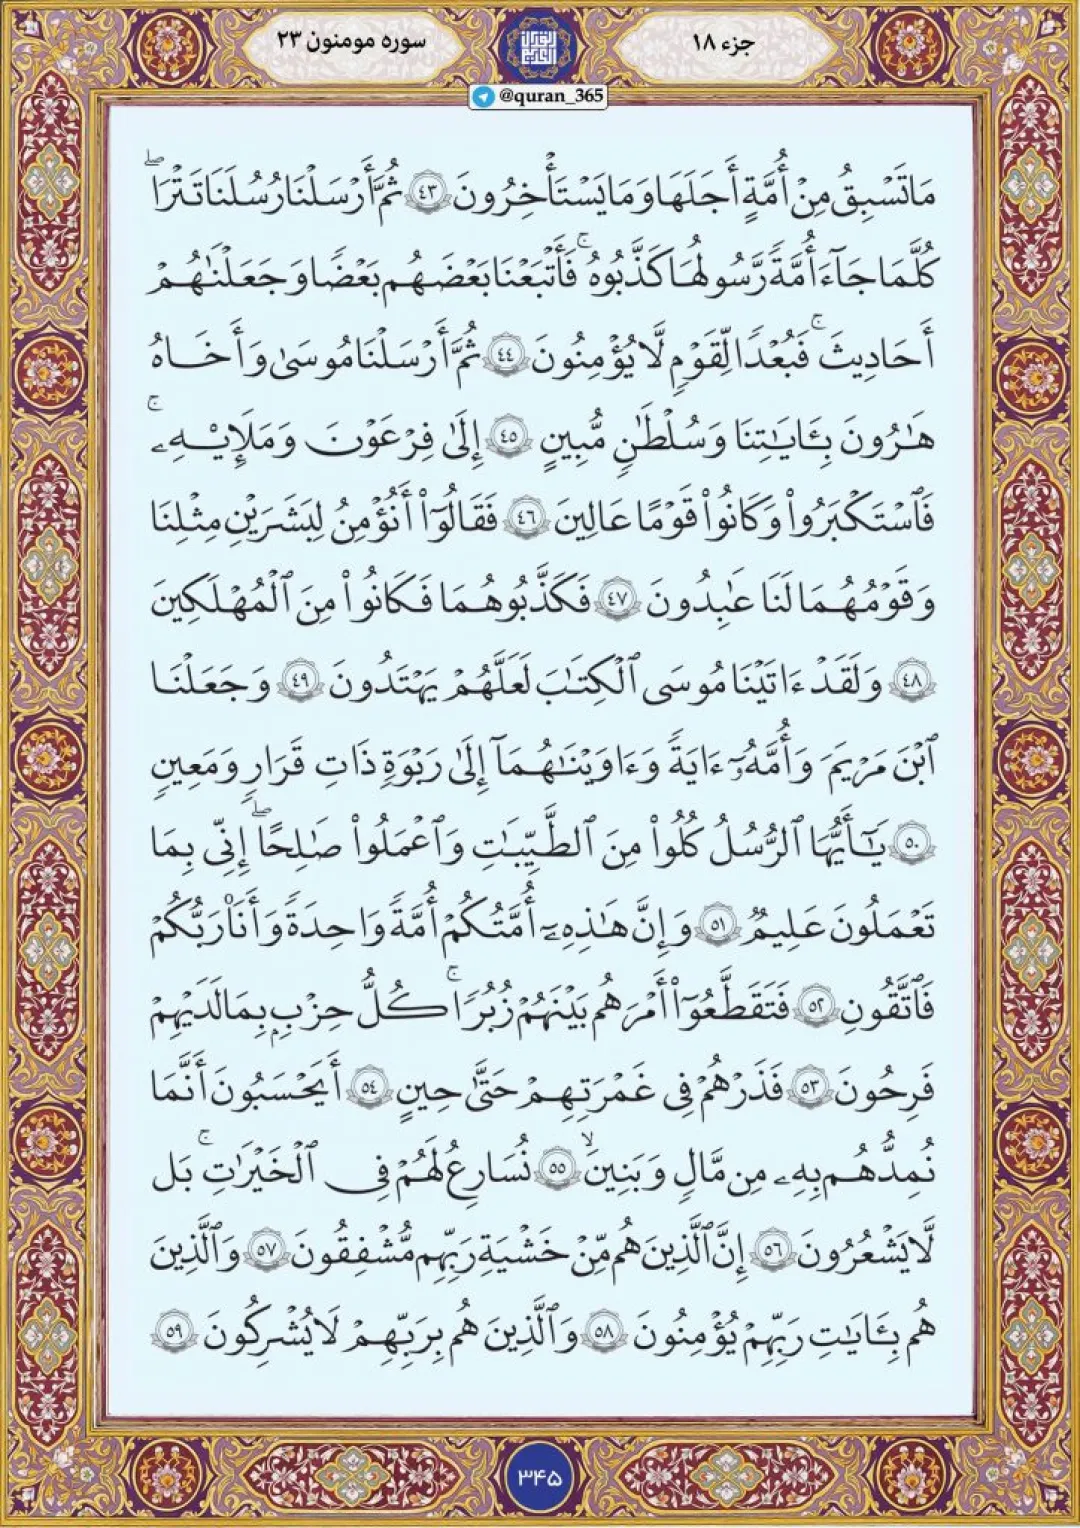 جزء ۱۸
سوره مومنون ۲۳
@quran_365
مَا تَسْبِقُ مِنْ أُمَّةٍ أَجَلَهَا وَمَا يَسْتَأْخِرُونَ ٤٣ ثُمَّ أَرْسَلْنَا رُسُلَنَا تَتْرَا ۖ
كُلَّمَا جَآءَ أُمَّةً رَّسُولُهَا كَذَّبُوهُ ۚ فَأَتْبَعْنَا بَعْضَهُم بَعْضًا وَجَعَلْنَٰهُمْ
أَحَادِيثَ ۚ فَبُعْدًا لِّقَوْمٍ لَّا يُؤْمِنُونَ ٤٤ ثُمَّ أَرْسَلْنَا مُوسَىٰ وَأَخَاهُ
هَٰرُونَ بِـَٔايَٰتِنَا وَسُلْطَٰنٍ مُّبِينٍ ٤٥ إِلَىٰ فِرْعَوْنَ وَمَلَإِيْهِۦ ۚ
فَٱسْتَكْبَرُوا۟ وَكَانُوا۟ قَوْمًا عَالِينَ ٤٦ فَقَالُوٓا۟ أَنُؤْمِنُ لِبَشَرَيْنِ مِثْلِنَا
وَقَوْمُهُمَا لَنَا عَٰبِدُونَ ٤٧ فَكَذَّبُوهُمَا فَكَانُوا۟ مِنَ ٱلْمُهْلَكِينَ
٤٨ وَلَقَدْ ءَاتَيْنَا مُوسَى ٱلْكِتَٰبَ لَعَلَّهُمْ يَهْتَدُونَ ٤٩ وَجَعَلْنَا
ٱبْنَ مَرْيَمَ وَأُمَّهُۥٓ ءَايَةً وَءَاوَيْنَٰهُمَآ إِلَىٰ رَبْوَةٍ ذَاتِ قَرَارٍ وَمَعِينٍ
٥٠ يَٰٓأَيُّهَا ٱلرُّسُلُ كُلُوا۟ مِنَ ٱلطَّيِّبَٰتِ وَٱعْمَلُوا۟ صَٰلِحًا ۖ إِنِّى بِمَا
تَعْمَلُونَ عَلِيمٌ ٥١ وَإِنَّ هَٰذِهِۦٓ أُمَّتُكُمْ أُمَّةً وَٰحِدَةً وَأَنَا۠ رَبُّكُمْ
فَٱتَّقُونِ ٥٢ فَتَقَطَّعُوٓا۟ أَمْرَهُم بَيْنَهُمْ زُبُرًا ۖ كُلُّ حِزْبٍۭ بِمَا لَدَيْهِمْ
فَرِحُونَ ٥٣ فَذَرْهُمْ فِى غَمْرَتِهِمْ حَتَّىٰ حِينٍ ٥٤ أَيَحْسَبُونَ أَنَّمَا
نُمِدُّهُم بِهِۦ مِن مَّالٍ وَبَنِينَ ۙ ٥٥ نُسَارِعُ لَهُمْ فِى ٱلْخَيْرَٰتِ ۚ بَل
لَّا يَشْعُرُونَ ٥٦ إِنَّ ٱلَّذِينَ هُم مِّنْ خَشْيَةِ رَبِّهِم مُّشْفِقُونَ ٥٧ وَٱلَّذِينَ
هُم بِـَٔايَٰتِ رَبِّهِمْ يُؤْمِنُونَ ٥٨ وَٱلَّذِينَ هُم بِرَبِّهِمْ لَا يُشْرِكُونَ ٥٩
۳۴۵